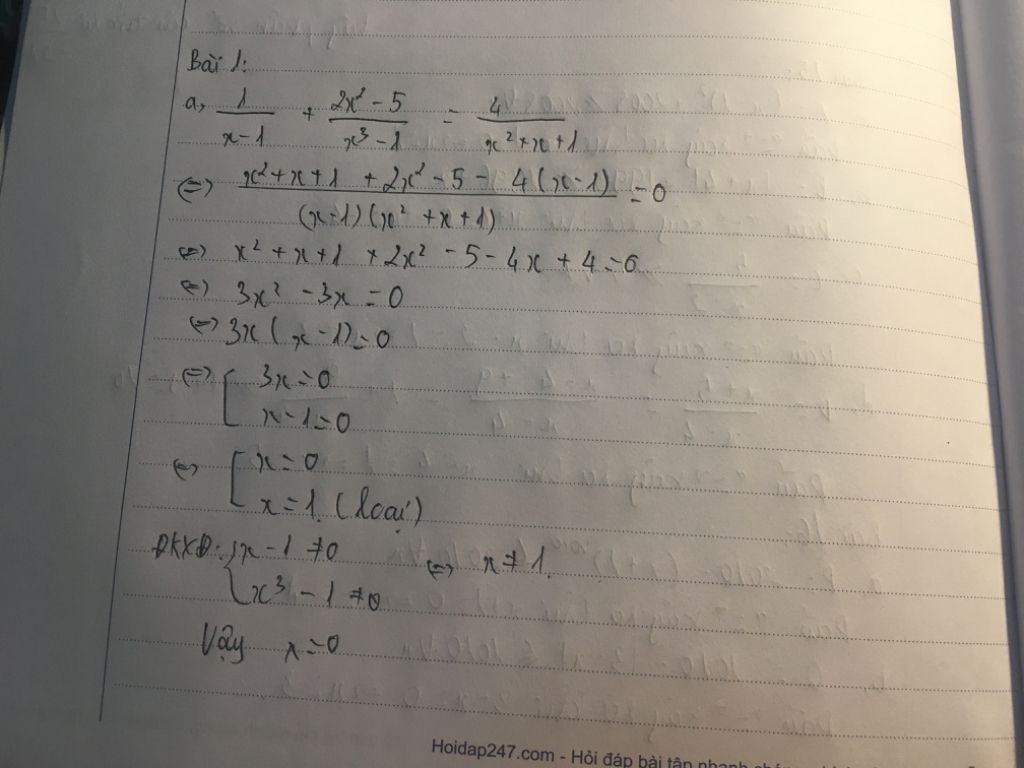 Bài 1:
a, 1/(x-1) + (2x² - 5)/(x³ - 1) = 4/(x² + x + 1)
(=) (x² + x + 1 + 2x² - 5 - 4(x-1))/((x-1)(x² + x + 1)) = 0
(=) x² + x + 1 + 2x² - 5 - 4x + 4 = 0
(=) 3x² - 3x = 0
(=) 3x(x - 1) = 0
(=) [ 3x = 0
x - 1 = 0
(=) [ x = 0
x = 1. (loại)
ĐKXĐ: { x - 1 ≠ 0 (=) x ≠ 1.
x³ - 1 ≠ 0
Vậy x = 0
Hoidap247.com - Hỏi đáp bài tập nhanh